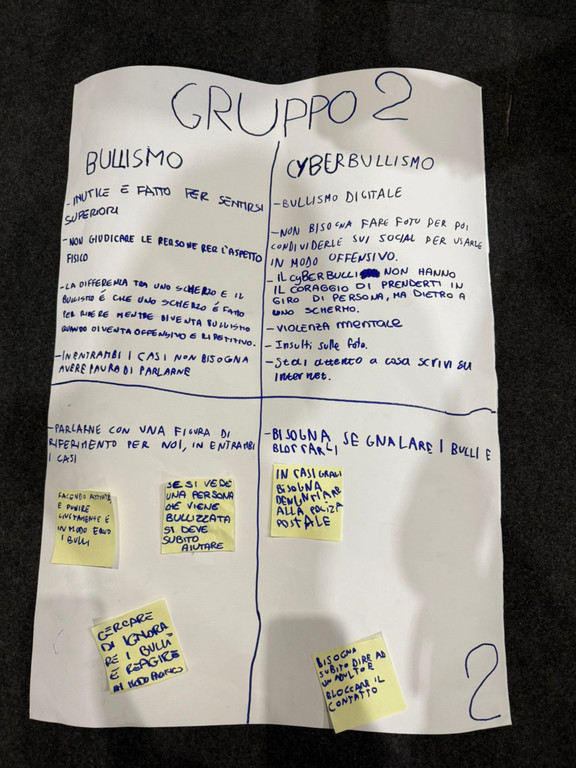 GRUPPO 2
BULLISMO
- INUTILE E FATTO PER SENTIRSI
SUPERIORI
- NON GIUDICARE LE PERSONE PER L'ASPETTO
FISICO
- LA DIFFERENZA TRA UNO SCHERZO E IL
BULLISMO É CHE UNO SCHERZO É FATTO
PER RIDERE MENTRE DIVENTA BULLISMO
QUANDO DIVENTA OFFENSIVO E RIPETITIVO.
- IN ENTRAMBI I CASI NON BISOGNA
AVERE PAURA DI PARLARNE
CYBERBULLISMO
- BULLISMO DIGITALE
- NON BISOGNA FARE FOTO PER POI
CONDIVIDERLE SUI SOCIAL PER USARLE
IN MODO OFFENSIVO.
- IL CYBERBULLI NON HANNO
IL CORAGGIO DI PRENDERTI IN
GIRO DI PERSONA, MA DIETRO A
UNO SCHERMO.
- VIOLENZA MENTALE
- Insulti sulle foto.
- Stai attento a cosa scrivi su
internet.
- PARLARNE CON UNA FIGURA DI
RIFERIMENTO PER NOI, IN ENTRAMBI
I CASI
FACENDO
E PUNIRE
GIUSTAMENTE E
IN MODO EQUO
I BULLI
SE SI VEDE
UNA PERSONA
CHE VIENE
BULLIZZATA
SI DEVE
SUBITO
AIUTARE
CERCARE
DI IGNORA
RE I BULLI
E REAGIRE
IN MODO PACIFICO
- BISOGNA SEGNALARE I BULLI E
BLOCCARLI
IN CASI GRAVI
BISOGNA
DENUNTIARE
ALLA POLIZIA
POSTALE
BISOGNA
SUBITO DIRE AD
UN ADULTO E
BLOCCARE IL
CONTATTO
2